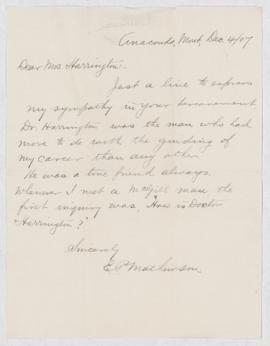 Anaconda, Mont, Dec. 4/07
Dear Mrs Harrington:-
Just a line to express
my sympathy in your bereavement
Dr. Harrington was the man who had
more to do with the guiding of
my career than any other.
He was a true friend always.
Whenever I met a McGill man the
first inquiry was, "How is Doctor
Harrington?"
Sincerely
E P Mathewson